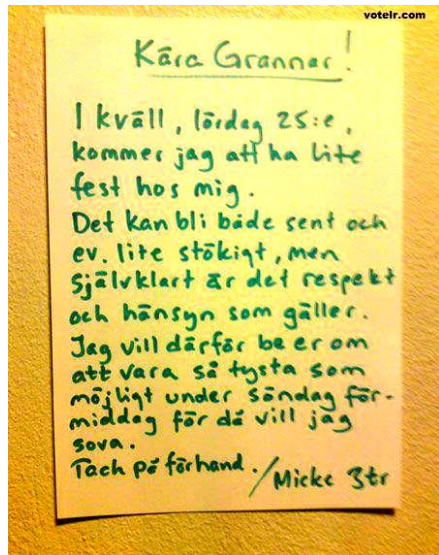 voteir.com
Kära Grannar!
I kväll, lördag 25:e,
kommer jag att ha lite
fest hos mig.
Det kan bli både sent och
ev. lite stökigt, men
självklart är det respekt
och hänsyn som gäller.
Jag vill därför be er om
att vara så tysta som
möjligt under söndag för-
middag för då vill jag
sova.
Tack på förhand. / Micke 3tr